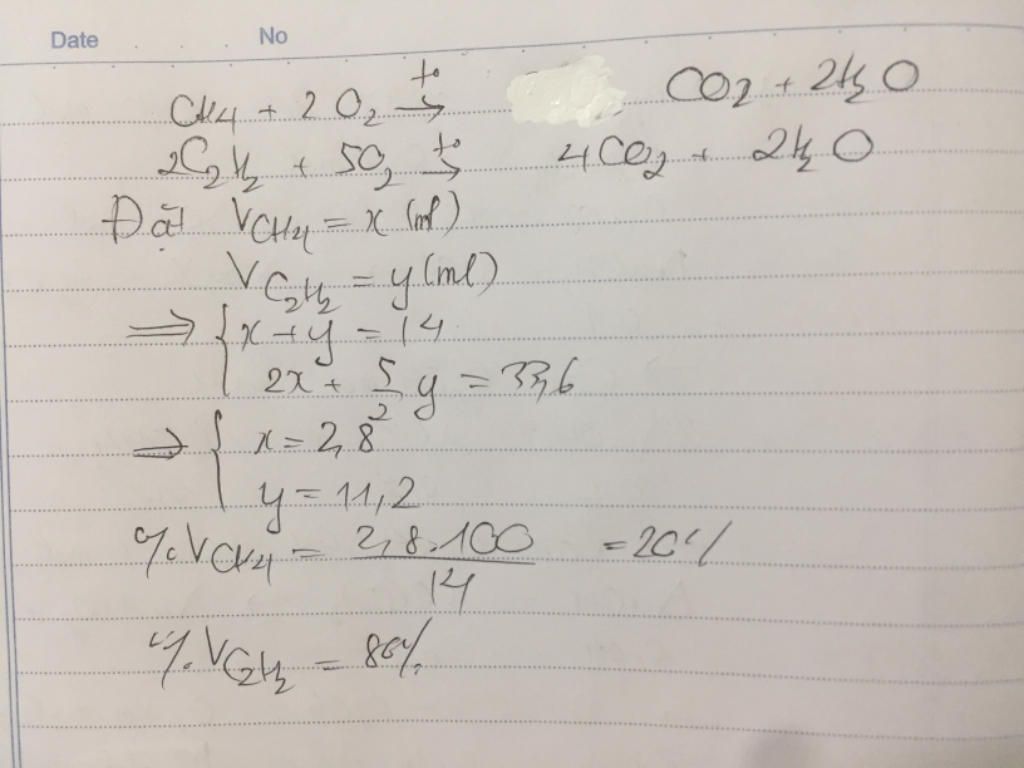 Date No
CH4 + 2 O2 →(t°) CO2 + 2H2O
2C2H2 + 5O2 →(t°) 4CO2 + 2H2O
Đặt VCH4 = x (ml)
VC2H2 = y (ml)
⇒ { x + y = 14
2x + 5/2 y = 33,6
⇒ { x = 2,8
y = 11,2
%VCH4 = 2,8.100/14 = 20%
%VC2H2 = 80%.